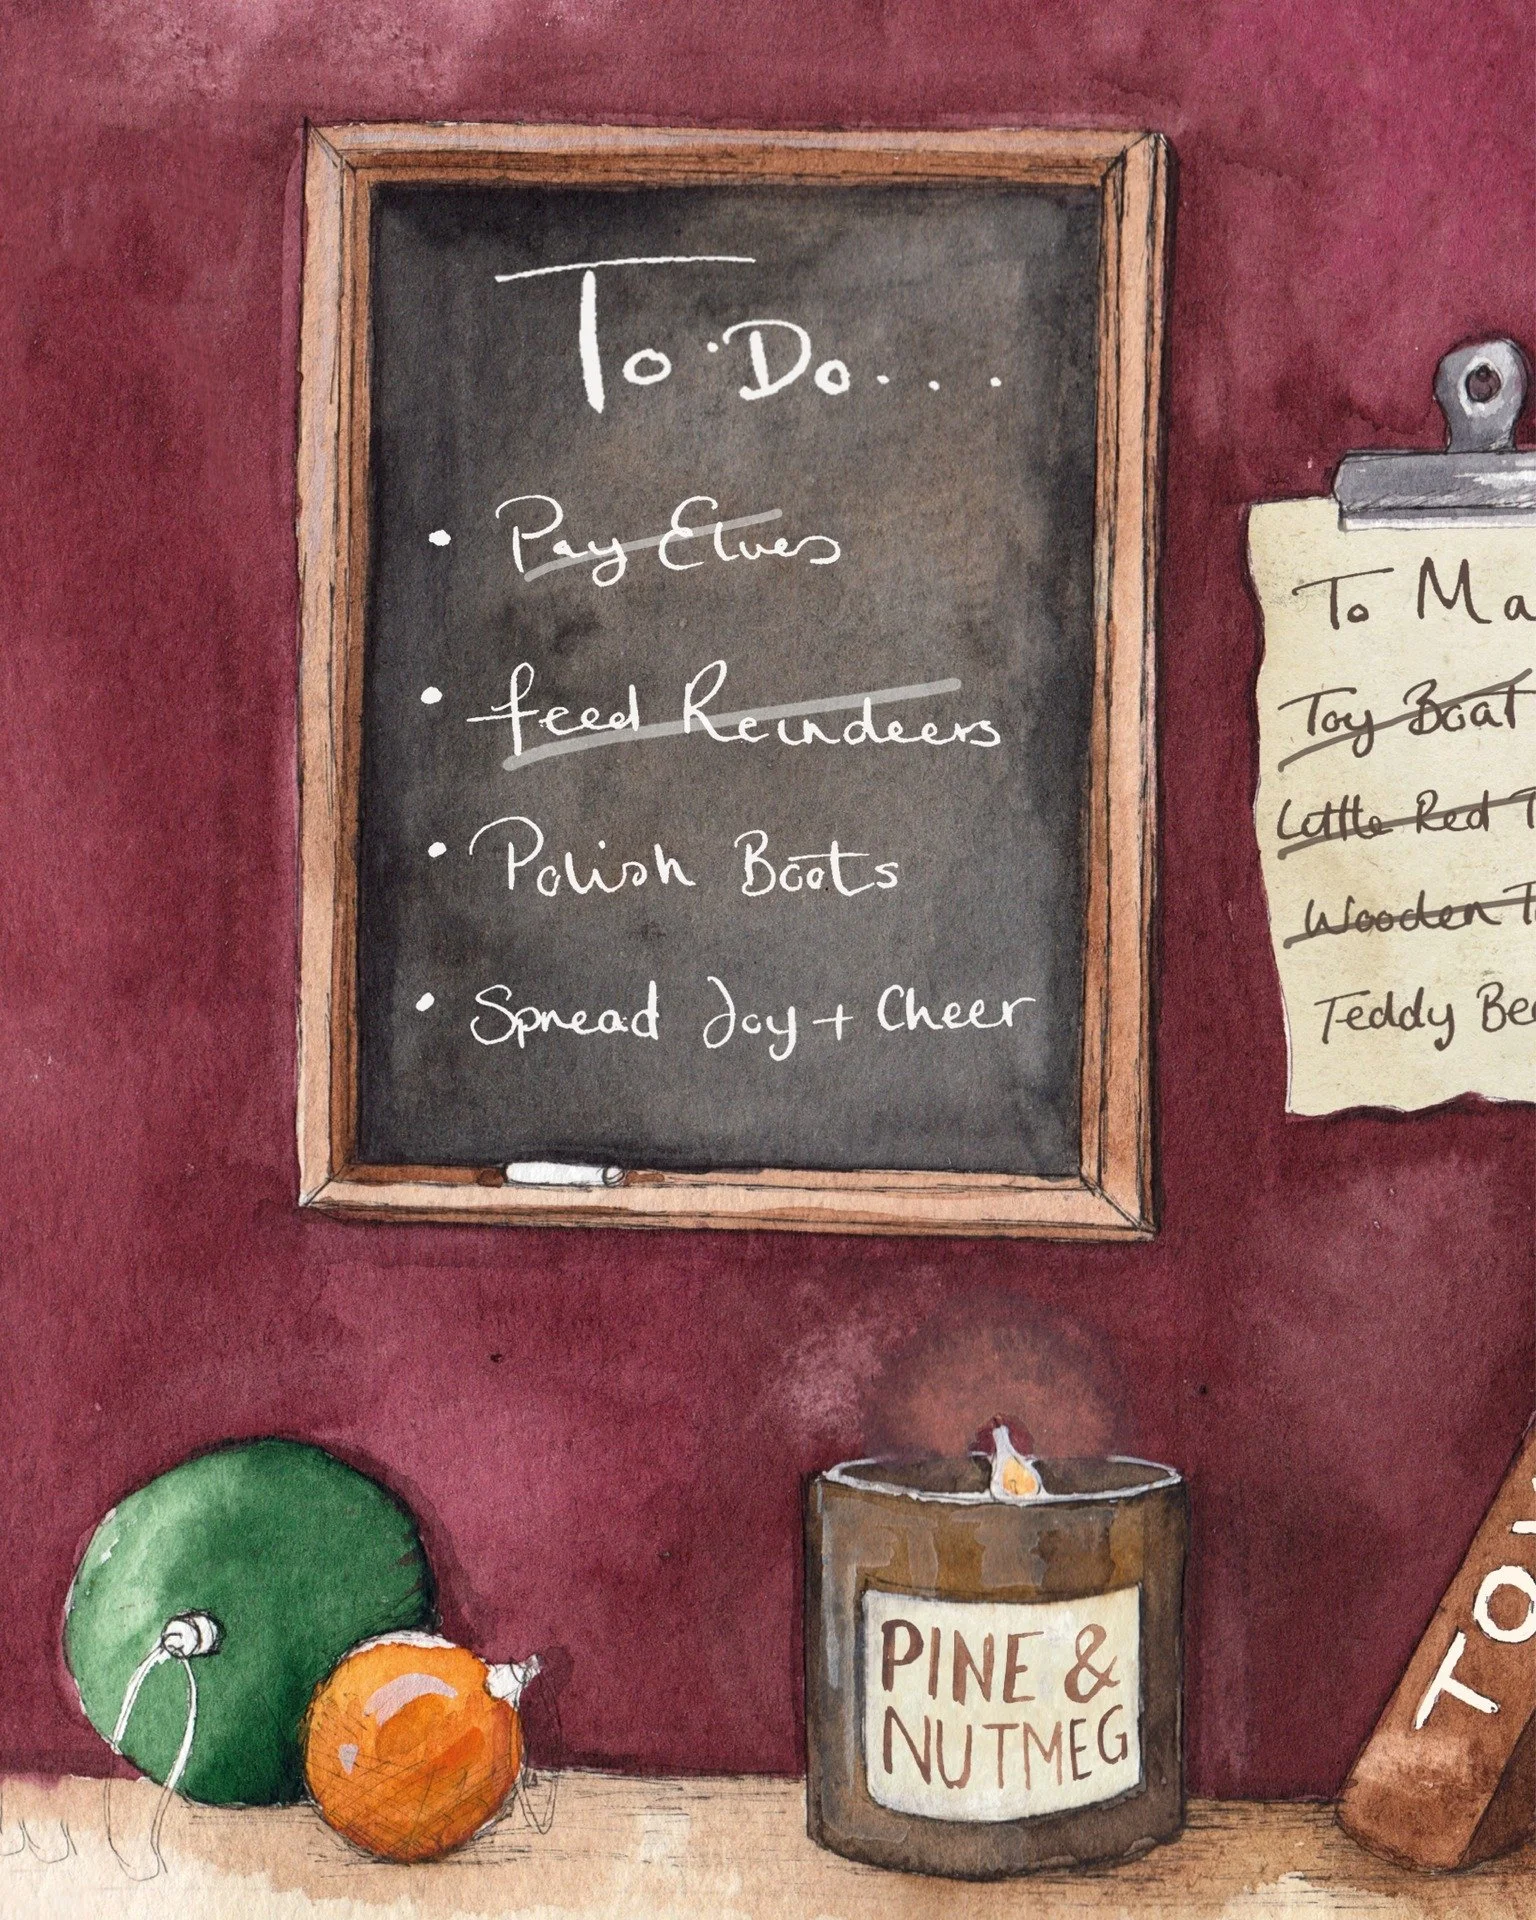 To Do...
• Pay Elves
• feed Reindeers
• Polish Boots
• Spread Joy + Cheer
To Ma
Toy Boat
Little Red T
Wooden T
Teddy Bea
PINE &
NUTMEG
TOY